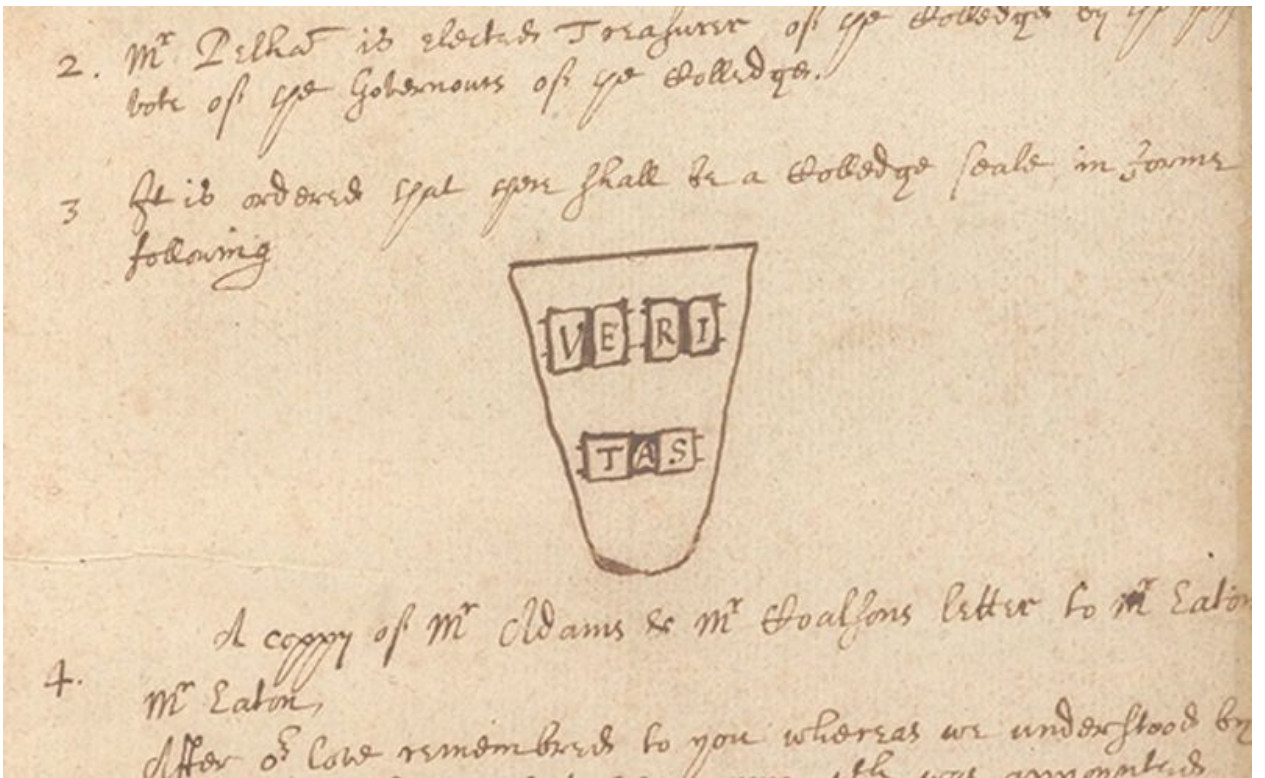 2. Mr Pelhā is elected Treasurer of ye Colledge by ye
vote of ye Governours of ye Colledge.
3 It is ordered yt there shall be a Colledge seale in forme
following
VE RI
TAS
A coppy of Mr Adams & Mr Coalsons letter to Mr Eaton
4.
Mr Eaton,
After or love remembred to you whereas we understood by